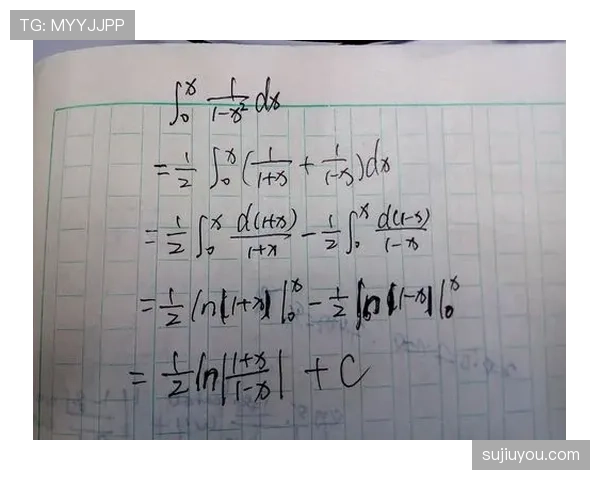 TG: MYYJJPP
∫₀ˣ 1/(1-x²) dx
= 1/2 ∫₀ˣ (1/(1+x) + 1/(1-x)) dx
= 1/2 ∫₀ˣ d(1+x)/(1+x) - 1/2 ∫₀ˣ d(1-x)/(1-x)
= 1/2 ln|1+x| |₀ˣ - 1/2 ln|1-x| |₀ˣ
= 1/2 ln|(1+x)/(1-x)| + C
sujiuyou.com